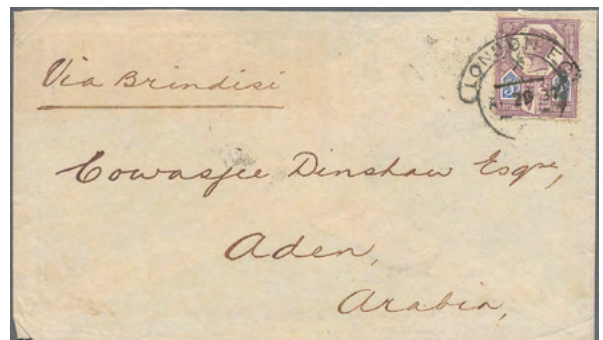 Via Brindisi
LONDON E.C.
Cowasjee Dinshaw Esqre,
Aden,
Arabia,